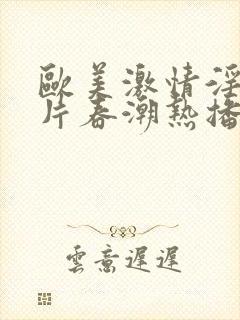 歐美激情淫
片春潮熱播
雲意遲遲